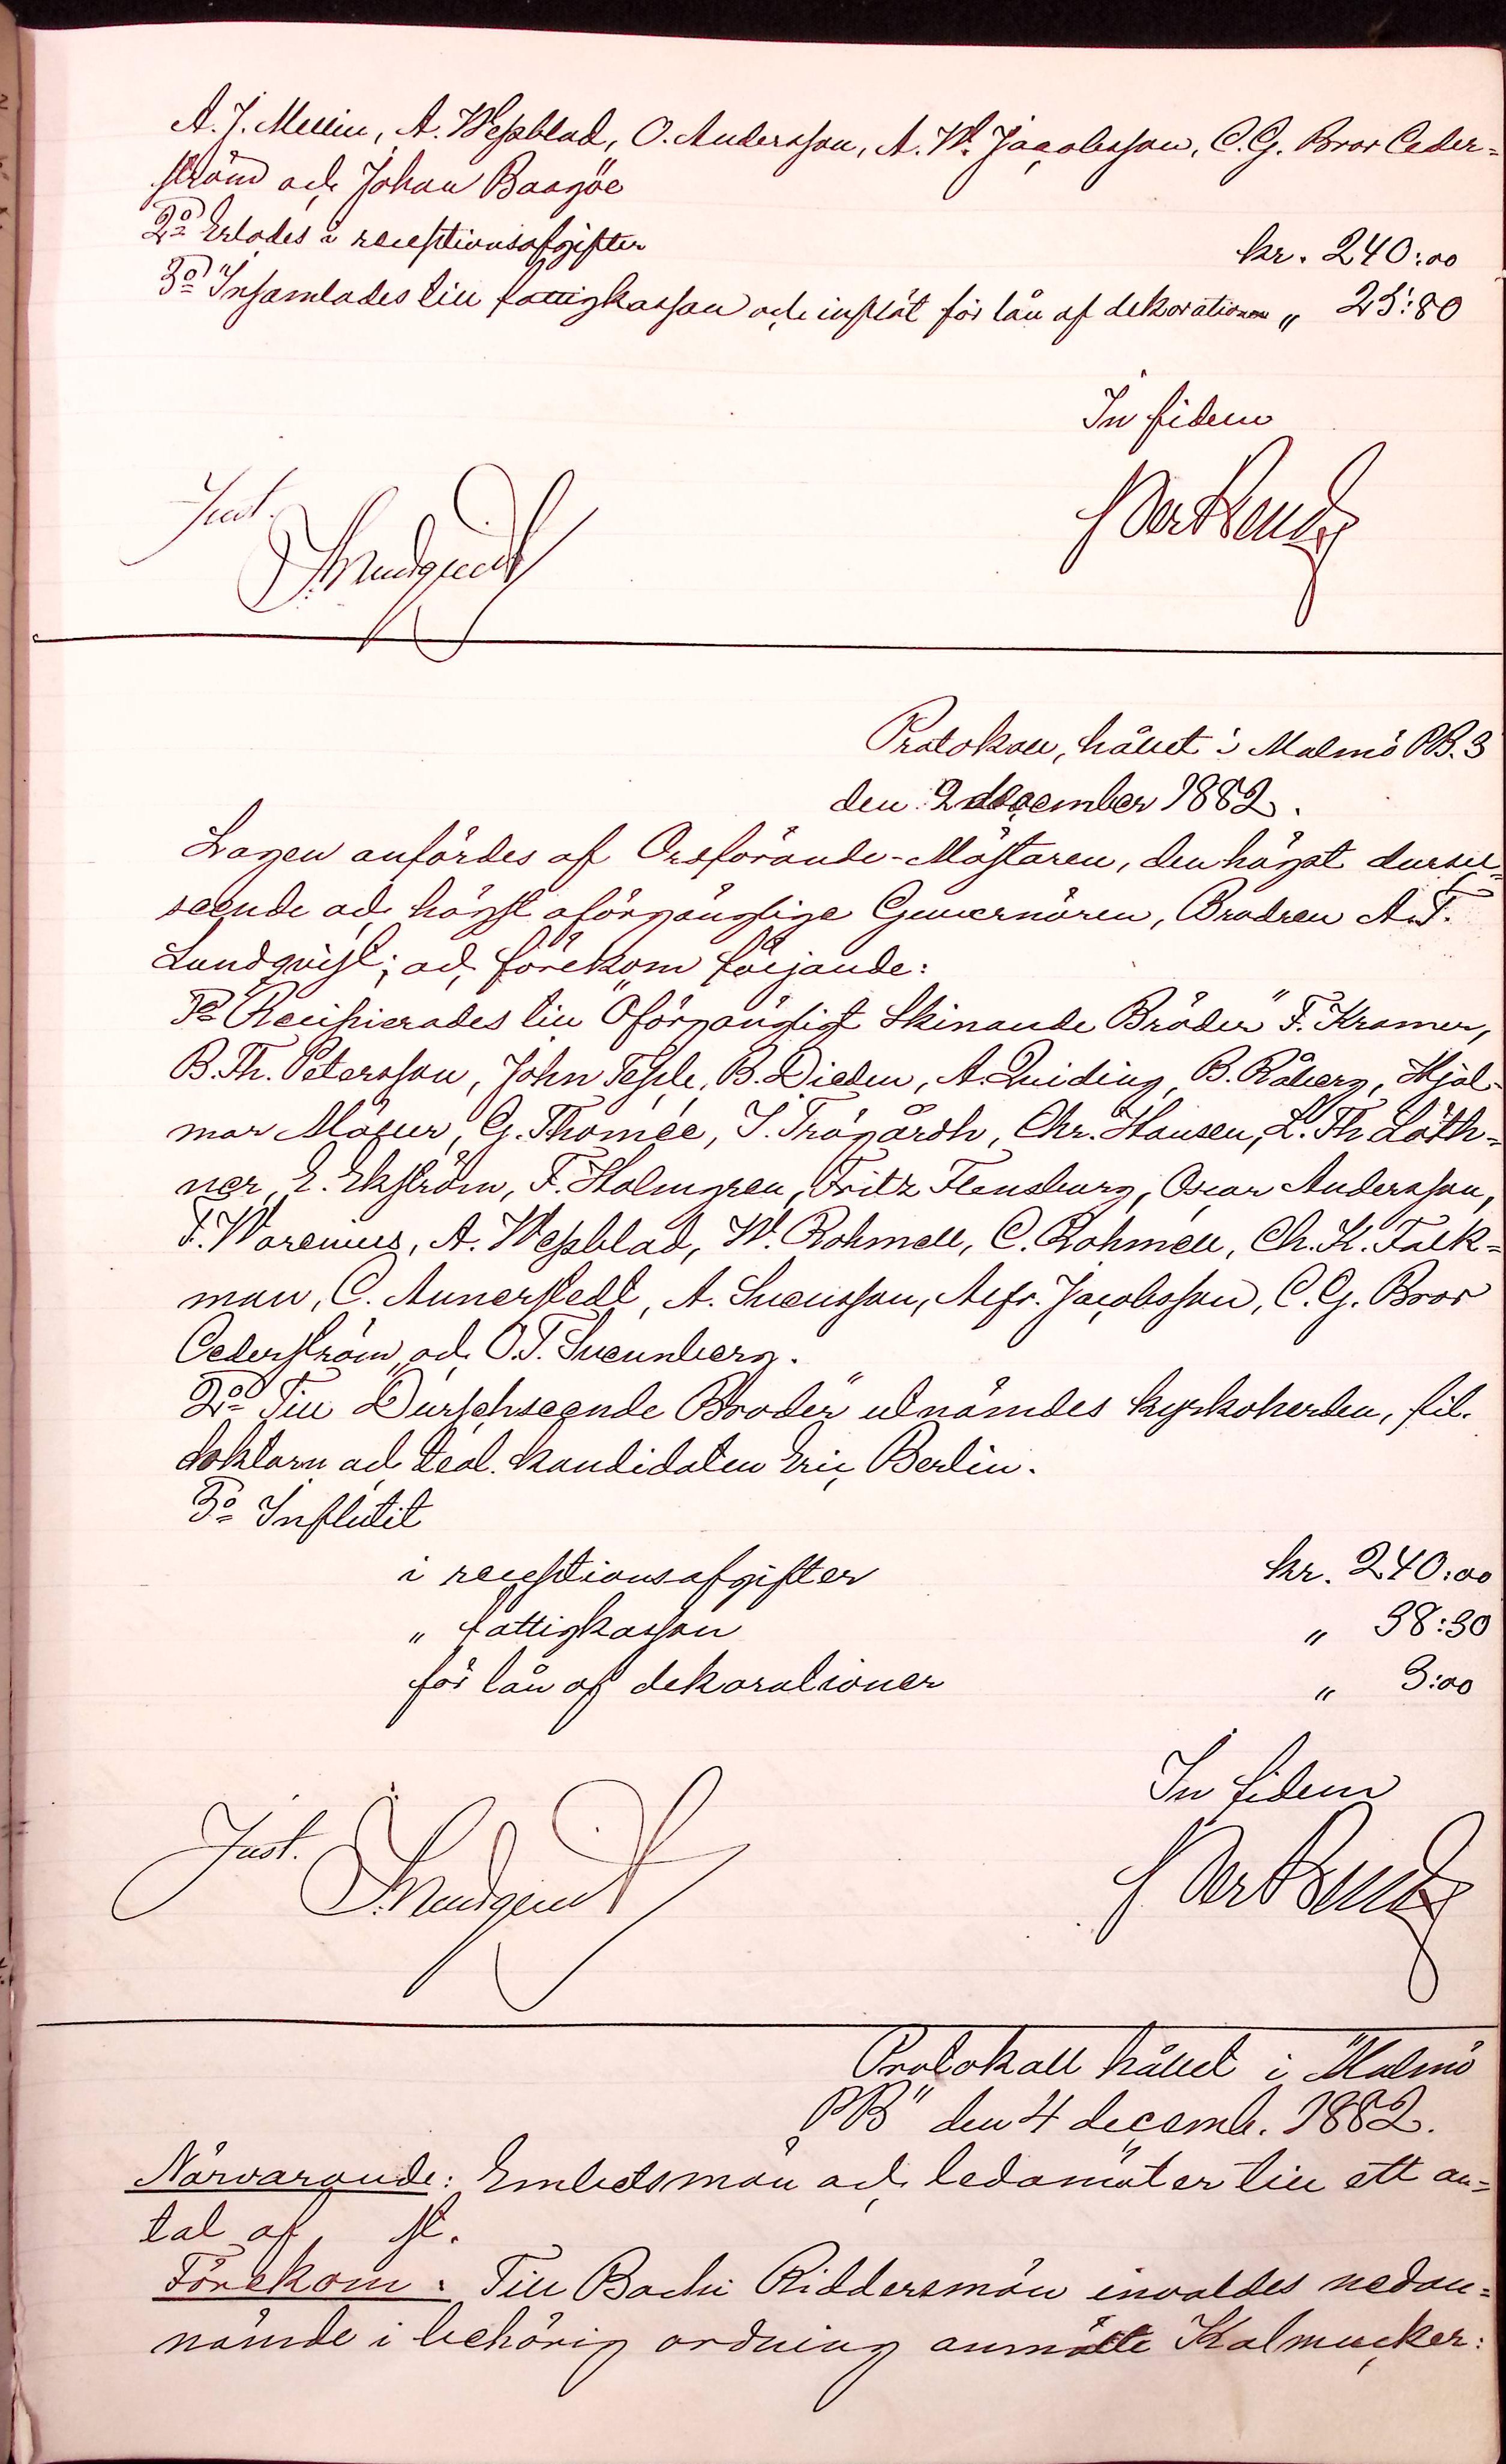 A. J. Mellin, A. Wessblad, O. Andersson, A. W. Jacobsson, C. G. Bror Ceder=
ström och Johan Baagöe
2o Erlades i receptionsafgifter kr. 240:00
3o Insamlades till fattigkassan och inflöt för lån af dekorationer „ 25:80
In fidem
Just.
Protokoll, hållet i Malmö PB. 3
den 2 december 1882.
Logen anfördes af Ordförande-Mästaren, den högst durser
seende och högst oförgänglige Guvernören, Brodren A. F.
Lundqvist; och förekom följande:
1o Recipierades till "Oförgängligt Skinande Bröder" F. Kramer,
B. Th. Petersson, John Tesch, B. Dieden, A. Quiding, B. Råberg, Hjal-
mar Möller, G. Thomée, J. Trägårdh, Chr. Hansen, L. Th Löth=
ner, E. Ekström, F. Holmgren, Fritz Flensburg, Oscar Andersson,
F. Warenius, A. Wessblad, W. Rohmell, C. Rohmell, Ch. K. Falk=
man, C. Annerstedt, A. Svensson, Alfr. Jacobsson, C. G. Bror
Cederström och O. T. Svennberg.
2o Till "Durschseende Broder" utnämdes kyrkoherden, fil.
doktorn och teol. kandidaten Eric Berlin.
3o Influtit
i receptionsafgifter kr. 240:00
„ fattigkassan „ 38:30
för lån af dekorationer „ 3:00
In fidem
Just.
Protokoll hållet i "Malmö
PB" den 4 decemb. 1882.
Närvarande: Embetsmän och ledamöter till ett an=
tal af st.
Förekom: Till Bachi Riddersmän invaldes nedan=
nämde i behörig ordning anmälte Kalmucker: